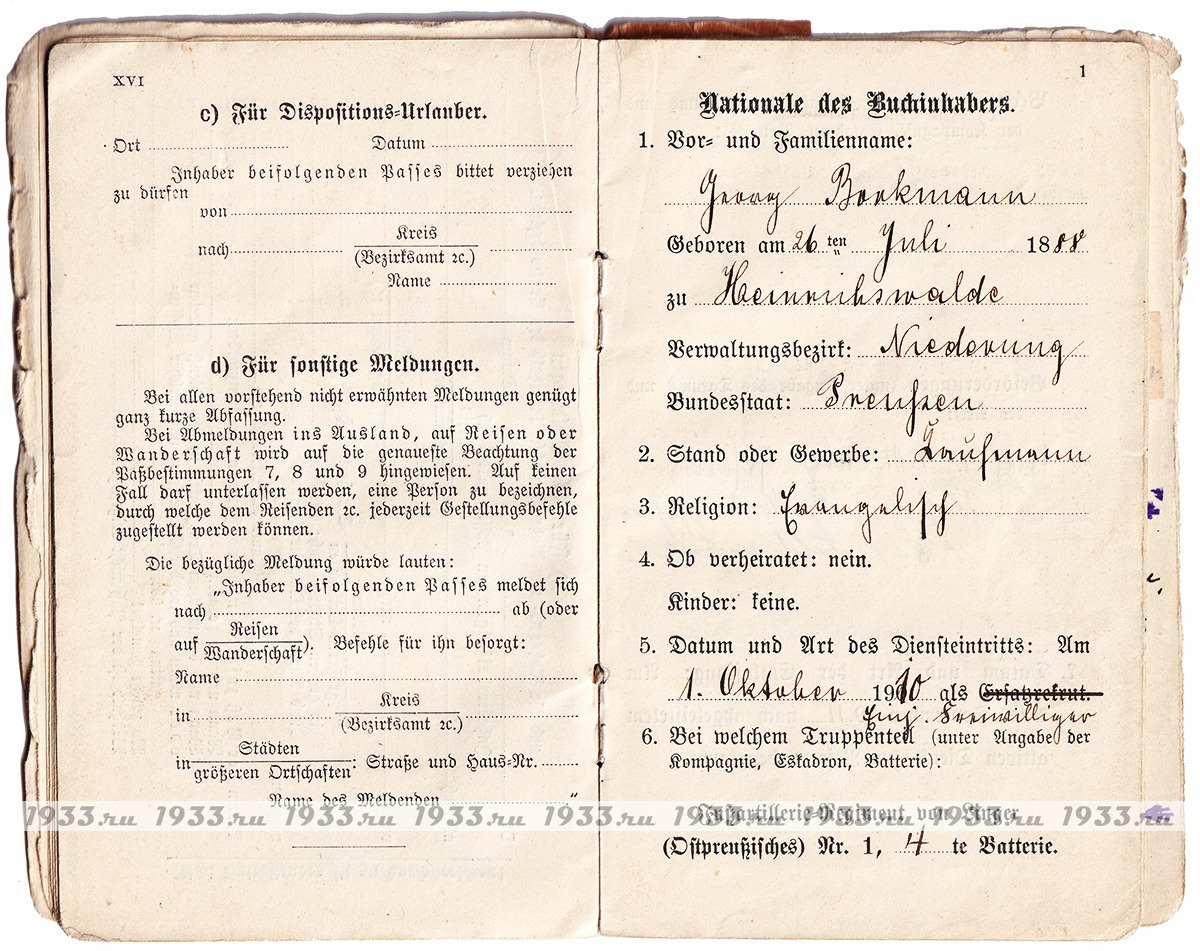 XVI
c) Für Dispositions-Urlauber.
Ort Datum
Inhaber beifolgenden Passes bittet verziehen
zu dürfen
von
nach Kreis
(Bezirksamt ꝛc.)
Name
d) Für sonstige Meldungen.
Bei allen vorstehend nicht erwähnten Meldungen genügt
ganz kurze Abfassung.
Bei Abmeldungen ins Ausland, auf Reisen oder
Wanderschaft wird auf die genaueste Beachtung der
Paßbestimmungen 7, 8 und 9 hingewiesen. Auf keinen
Fall darf unterlassen werden, eine Person zu bezeichnen,
durch welche dem Reisenden ꝛc. jederzeit Gestellungsbefehle
zugestellt werden können.
Die bezügliche Meldung würde lauten:
„Inhaber beifolgenden Passes meldet sich
nach ab (oder
auf Reisen
Wanderschaft). Befehle für ihn besorgt:
Name
in Kreis
(Bezirksamt ꝛc.)
in Städten
größeren Ortschaften: Straße und Haus-Nr.
Name des Meldenden “
1
Nationale des Buchinhabers.
1. Vor- und Familienname:
Georg Borkmann
Geboren am 26 ten Juli 1888
zu Heinrichswalde
Verwaltungsbezirk: Niederung
Bundesstaat: Preußen
2. Stand oder Gewerbe: Kaufmann
3. Religion: Evangelisch
4. Ob verheiratet: nein.
Kinder: keine.
5. Datum und Art des Diensteintritts: Am
1. Oktober 1910 als Ersatzrekrut.
Einj. Freiwilliger
6. Bei welchem Truppenteil (unter Angabe der
Kompagnie, Eskadron, Batterie):
Fußartillerie-Regiment von Linger
(Ostpreußisches) Nr. 1, 4 te Batterie.
1933.ru 1933.ru 1933.ru 1933.ru 1933.ru 1933.ru 1933.ru 1933.ru 1933.ru